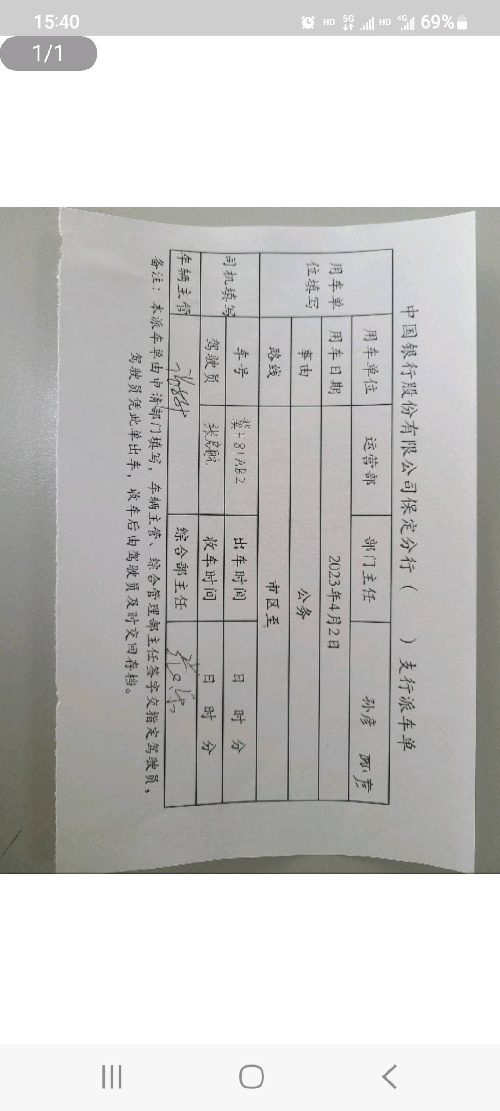 15:40
HD 5G HD 4G 69%
1/1
中国银行股份有限公司保定分行（　　）支行派车单
用车单位填写 用车单位 运营部 部门主任 孙彦 孙彦
用车日期 2023年4月2日
事由 公务
路线 市区至
司机填写 车号 出车时间 日 时 分
驾驶员 收车时间 日 时 分
车辆主管 综合部主任
备注：本派车单由申请部门填写，车辆主管、综合管理部主任签字交指定驾驶员，
驾驶员凭此单出车，收车后由驾驶员及时交回存档。